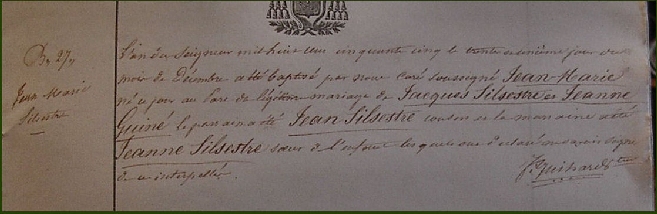 Bs 27
Jean Marie
Silsestre
L'an du Seigneur mil huit cent cinquante cinq le trente et unième jour du
mois de Décembre a été baptisé par nous Curé soussigné Jean-Marie
né ce jour au de légitime mariage de Jacques Silsestre et Jeanne
Guiné le parrain a été Jean Silsestre cousin et la marraine a été
Jeanne Silsestre sœur de l'enfant lesquels ont déclaré ne savoir signer
de ce interpellés.
Guihard